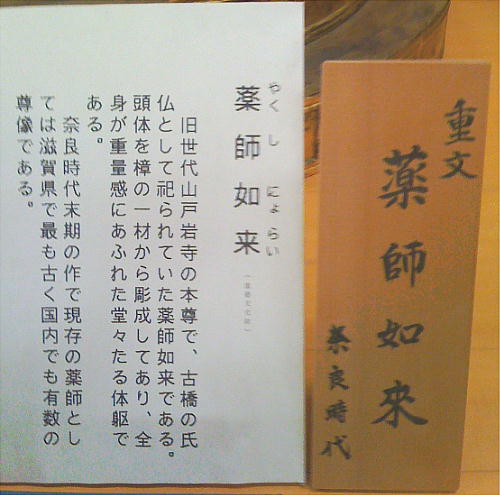 重文
薬師如来
奈良時代
やくし にょらい
薬師如来
(重要文化財)
旧世代山戸岩寺の本尊で、古橋の氏
仏として祀られていた薬師如来である。
頭体を樟の一材から彫成してあり、全
身が重量感にあふれた堂々たる体躯で
ある。
奈良時代末期の作で現存の薬師とし
ては滋賀県で最も古く国内でも有数の
尊像である。